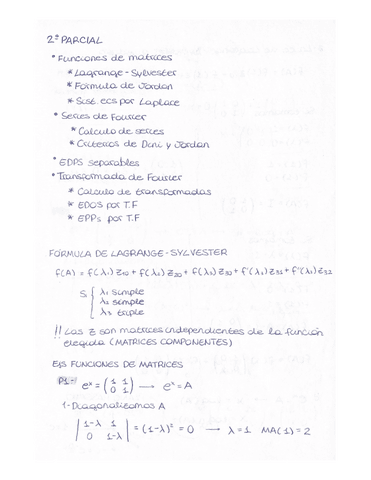 2º PARCIAL
* Funciones de matrices
* Lagrange-Sylvester
* Fórmula de Jordan
* Sist. ecs por Laplace
* Series de Fourier
* Calculo de series
* Criterios de Dini y Jordan
* EDPS separables
* Transformada de Fourier
* Calculo de transformadas
* EDOS por T.F
* EPPs por T.F
FÓRMULA DE LAGRANGE-SYLVESTER
f(A) = f(λ₁) Z₁₀ + f(λ₂) Z₂₀ + f(λ₃) Z₃₀ + f'(λ₃) Z₃₁ + f''(λ₃) Z₃₂
S { λ₁ simple
λ₂ simple
λ₃ triple
!! Las Z son matrices independientes de la función
elegida (MATRICES COMPONENTES)
EJS FUNCIONES DE MATRICES
P1- eˣ = (1 1
0 1) → eˣ = A
1-Diagonalizamos A
|1-λ 1
0 1-λ| = (1-λ)² = 0 → λ = 1 MA(1) = 2